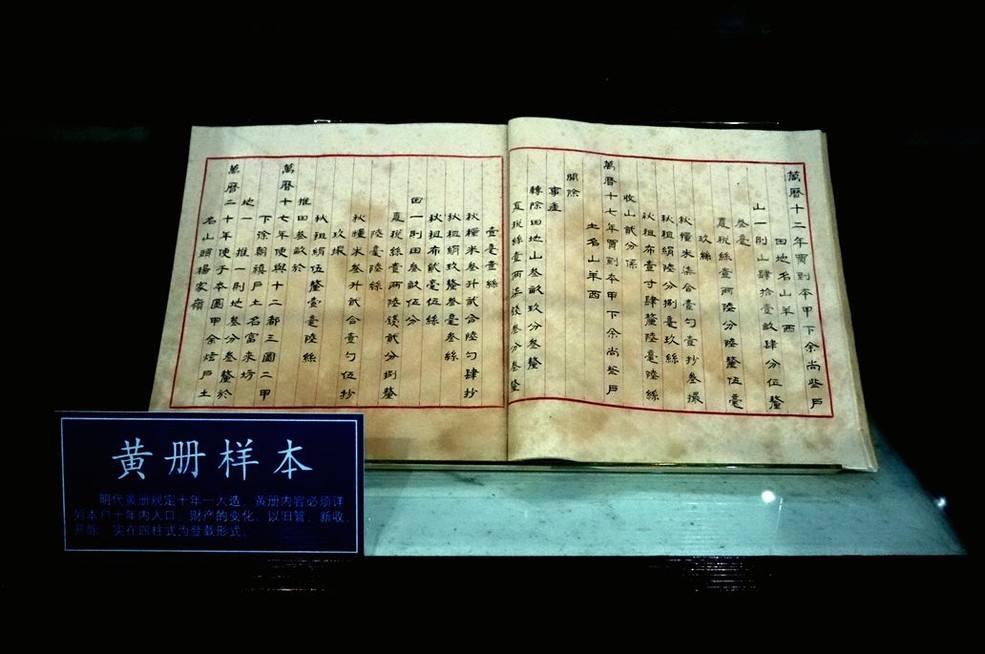 萬曆十二年買到本甲下余尚些戶
田地名山羊西
山一則山肆拾壹畝肆分伍釐
叁毫
夏稅絲壹兩陸分陸釐伍毫
玖絲
秋糧米柒合壹勺壹抄叁撮
秋租絹陸分捌毫玖絲
秋租布壹寸肆釐陸毫陸絲
萬曆十七年買到本甲下余尚些戶
土名山羊西
收山貳分係
開除
事產
轉除田地山叁畝玖分叁釐
夏稅絲壹兩柒錢叁分叁釐
壹毫壹絲
秋糧米叁升貳合陸勺肆抄
秋租絹玖釐叁毫叁絲
秋租布貳毫伍絲
田一則田叁畝伍分
夏稅絲壹兩陸錢貳分捌釐
陸毫陸絲
秋糧米叁升貳合壹勺伍抄
玖撮
秋租絹伍釐壹毫陸絲
推田叁畝於
萬曆十七年使與十二都三圖二甲
下徐朝禎戶土名富來塝
地一推一則地叁分叁釐於
萬曆二十年使于本圖甲余焙戶土
名山頭楊家嶺
黄册样本
明代黄册规定十年一大造，黄册内容必须详
列本户十年内人口、财产的变化，以旧管、新收、
开除、实在四柱式为登载形式。